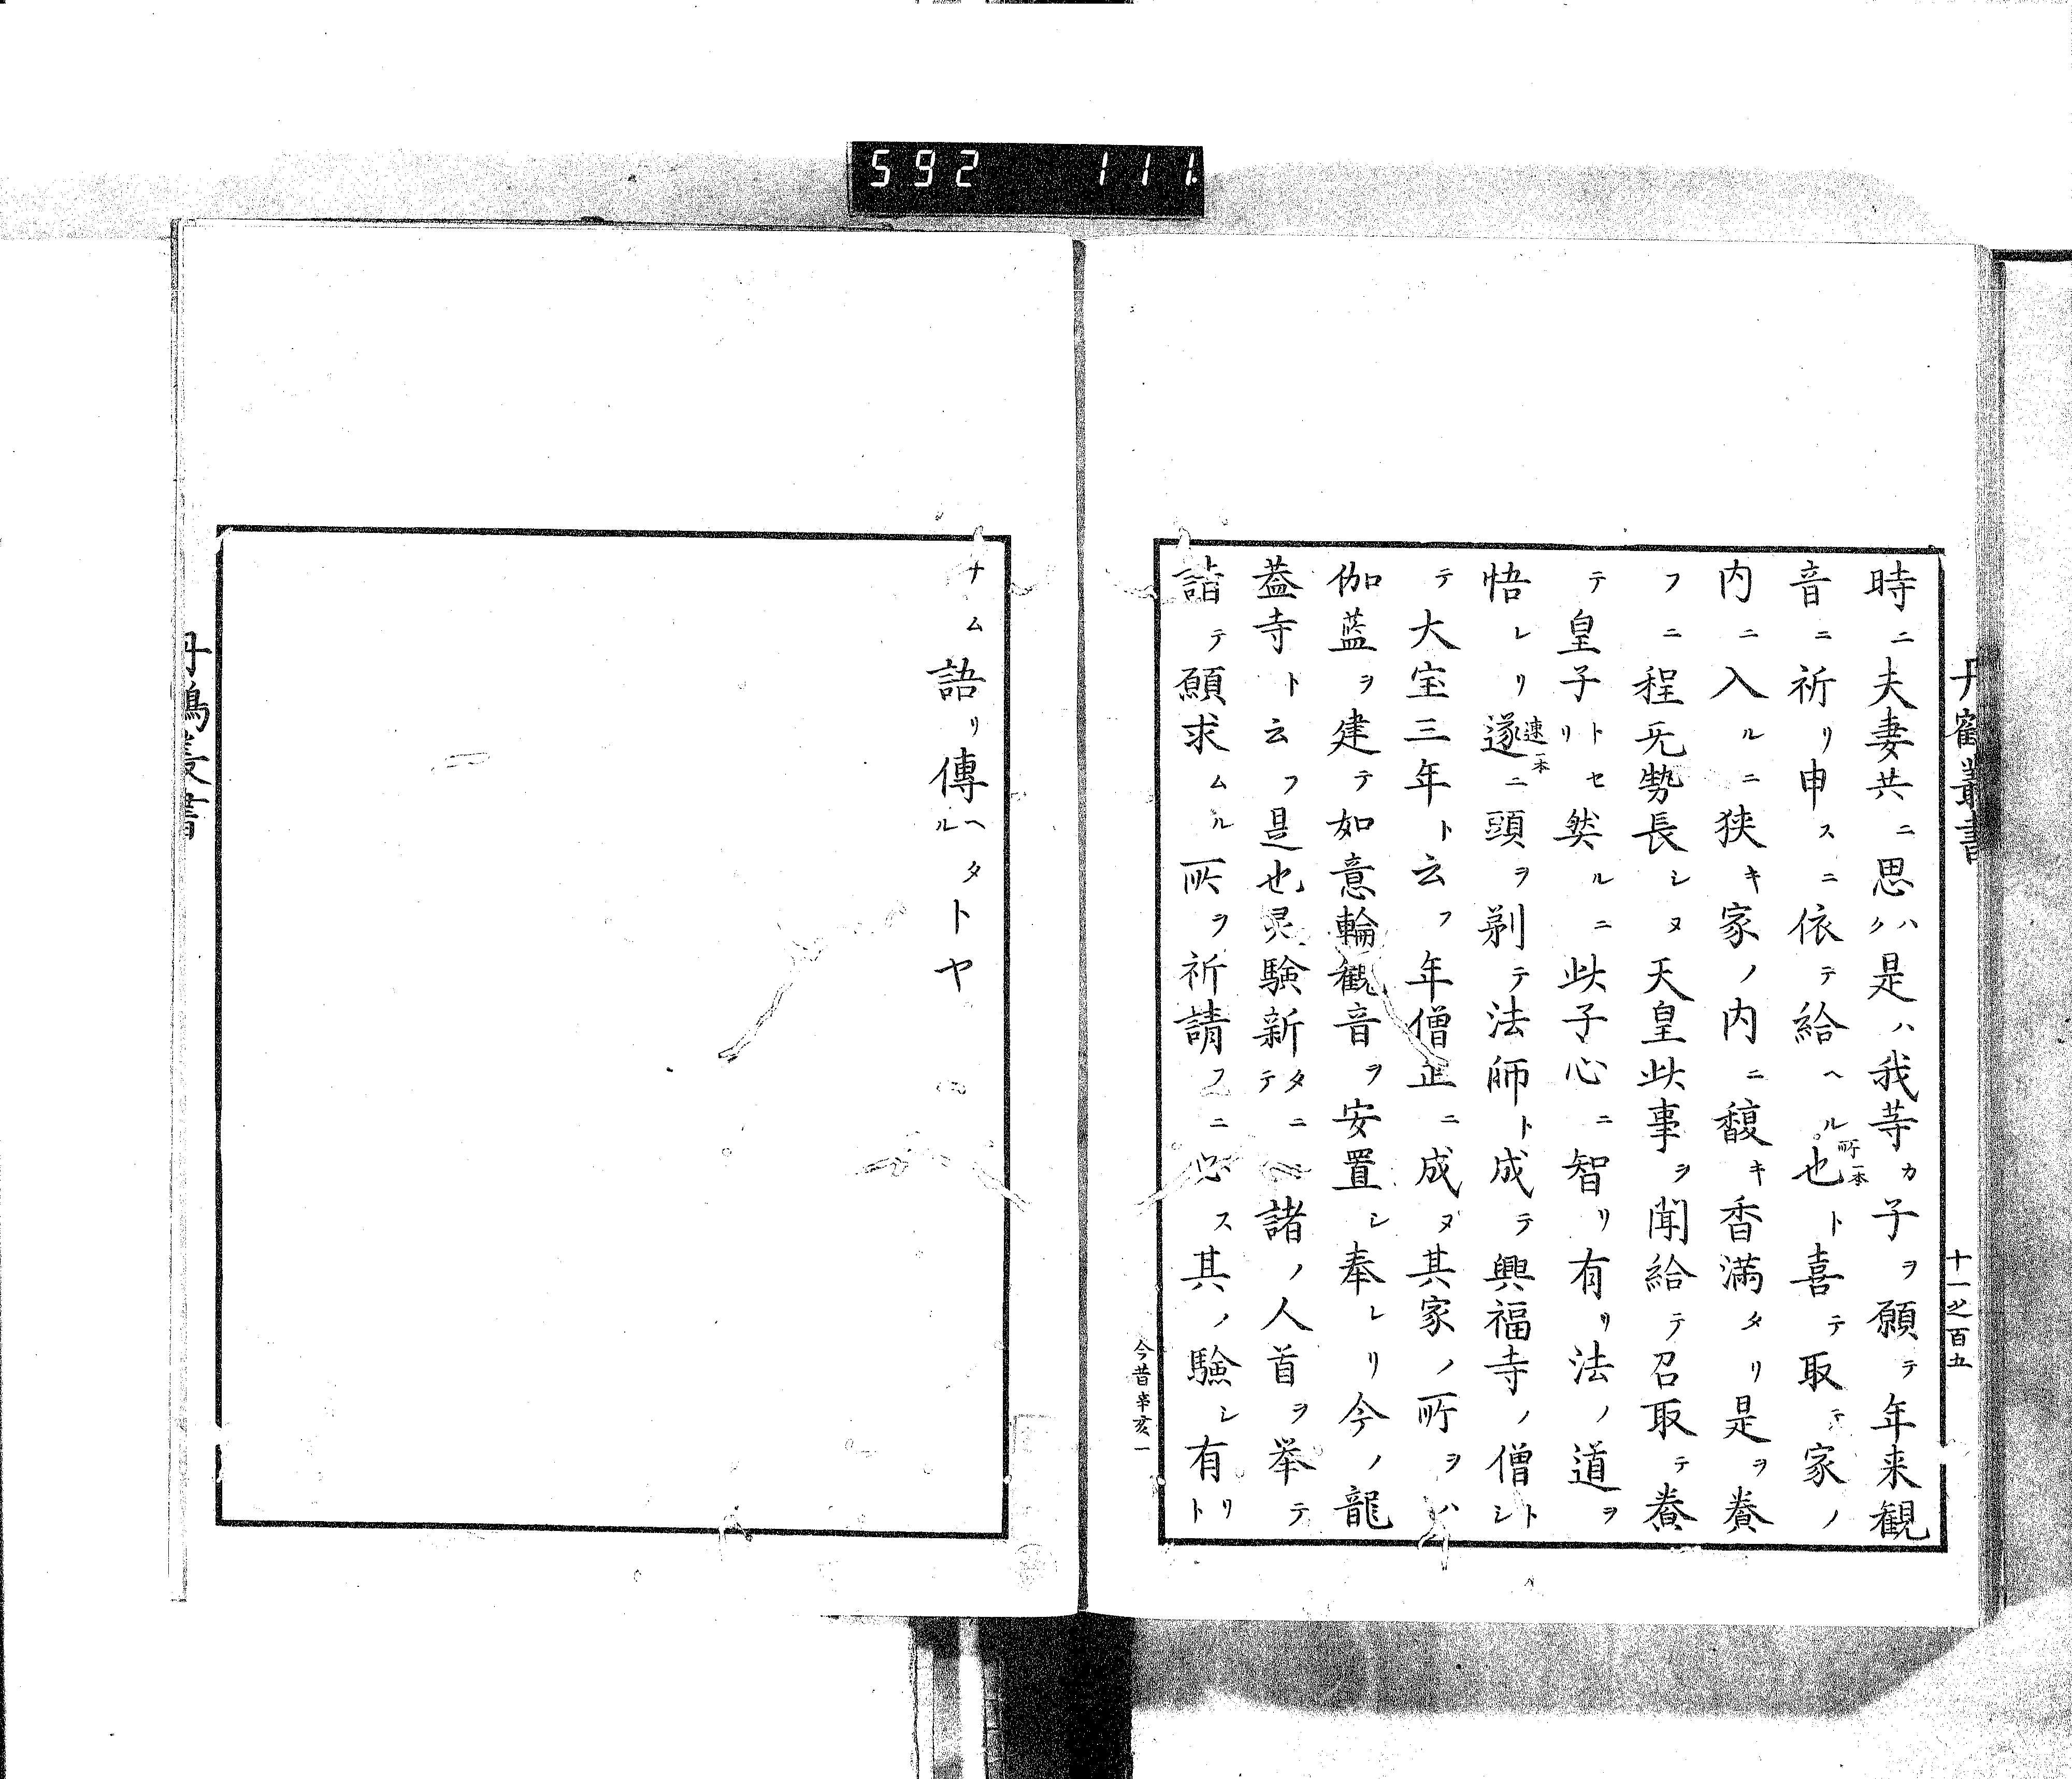 592 111
丹鶴叢書
十一之百五
時ニ夫妻共ニ思ハク是ハ我等カ子ヲ願テ年来観
音ニ祈リ申スニ依テ給ヘル也ト喜テ取テ家ノ
所一本
内ニ入ルニ狭キ家ノ内ニ馥キ香満タリ是ヲ養
フニ程无勢長シヌ天皇此事ヲ聞給テ召取テ養
テ皇子トセリ然ルニ此子心ニ智リ有リ法ノ道ヲ
悟レリ遂ニ頭ヲ剃テ法師ト成テ興福寺ノ僧トシ
速一本
テ大宝三年ト云フ年僧正ニ成ヌ其家ノ所ヲハ
伽藍ヲ建テ如意輪観音ヲ安置シ奉レリ今ノ龍
蓋寺ト云フ是也灵験新タニテ諸ノ人首ヲ挙テ
詣テ願求ムル所ヲ祈請フニ必ス其ノ験シ有リト
今昔辛亥一
ナム語リ傳ヘルタトヤ